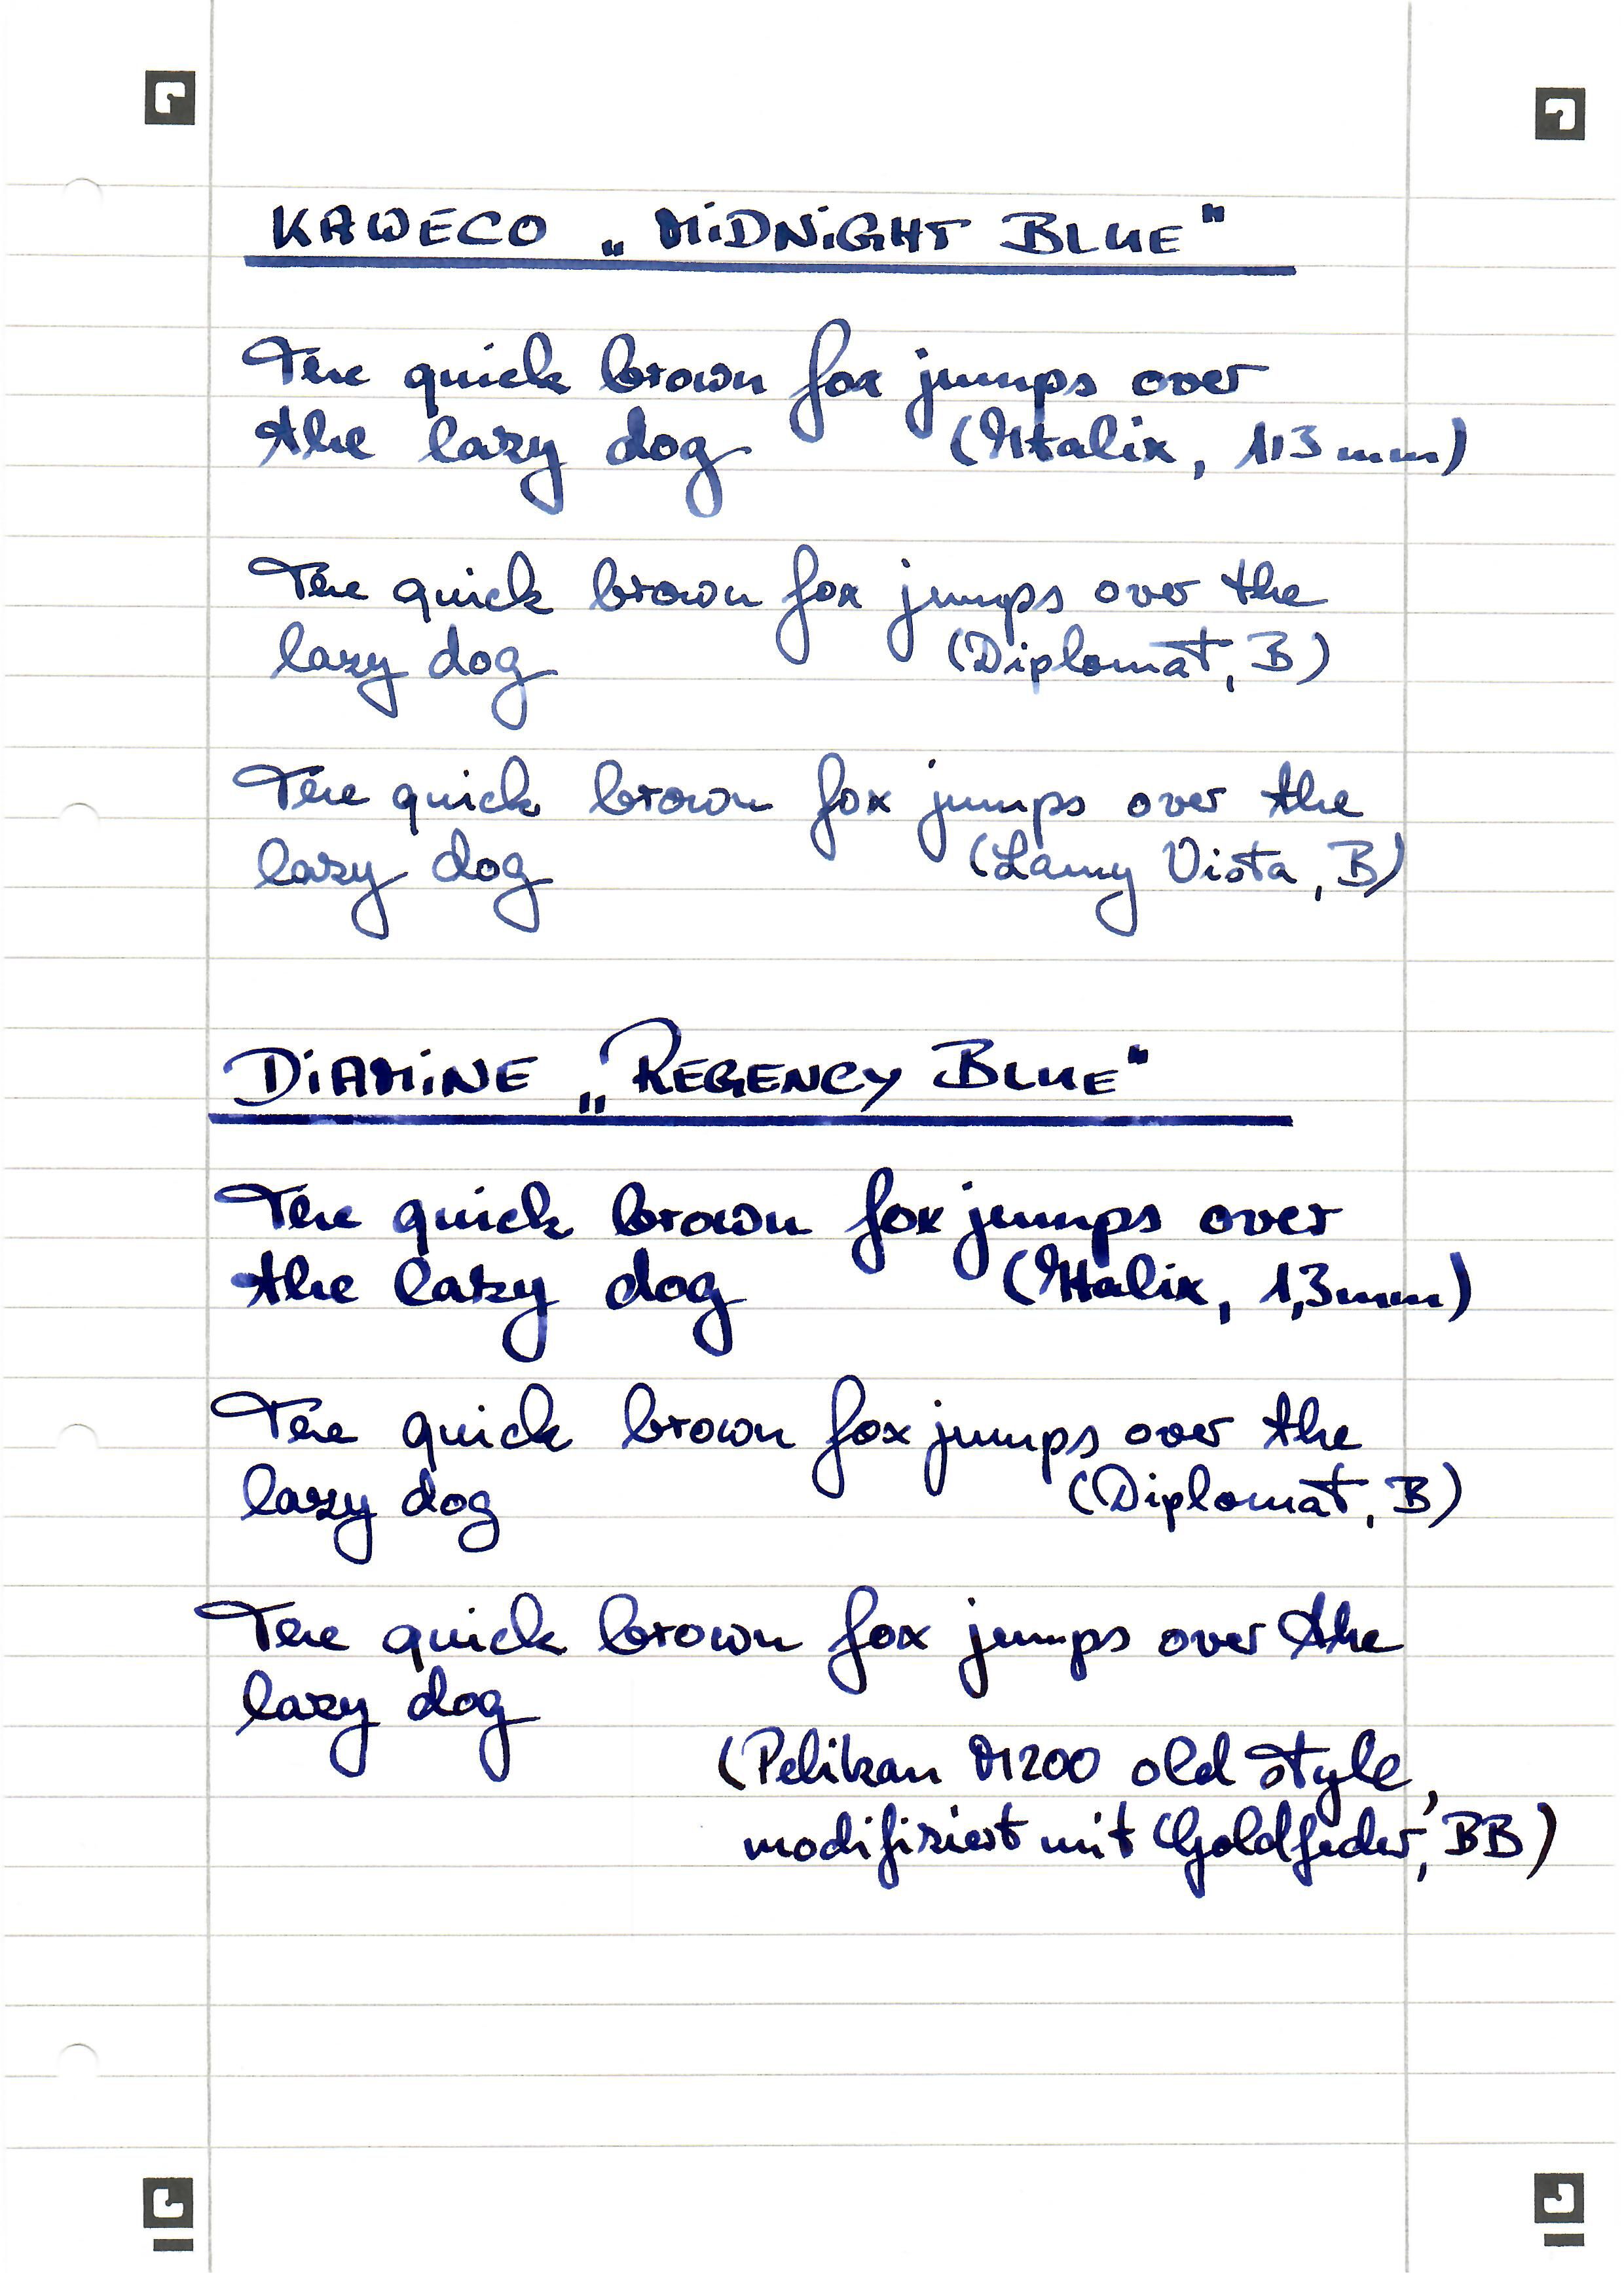 KAWECO „MiDNiGHT BLUE"
The quick brown fox jumps over
the lazy dog (Italix, 1,3mm)
The quick brown fox jumps over the
lazy dog (Diplomat, B)
The quick brown fox jumps over the
lazy dog (Lamy Vista, B)
DiAMiNE „REGENCY BLUE"
The quick brown fox jumps over
the lazy dog (Italix, 1,3mm)
The quick brown fox jumps over the
lazy dog (Diplomat, B)
The quick brown fox jumps over the
lazy dog
(Pelikan M200 old style,
modifiziert mit Goldfeder, BB)